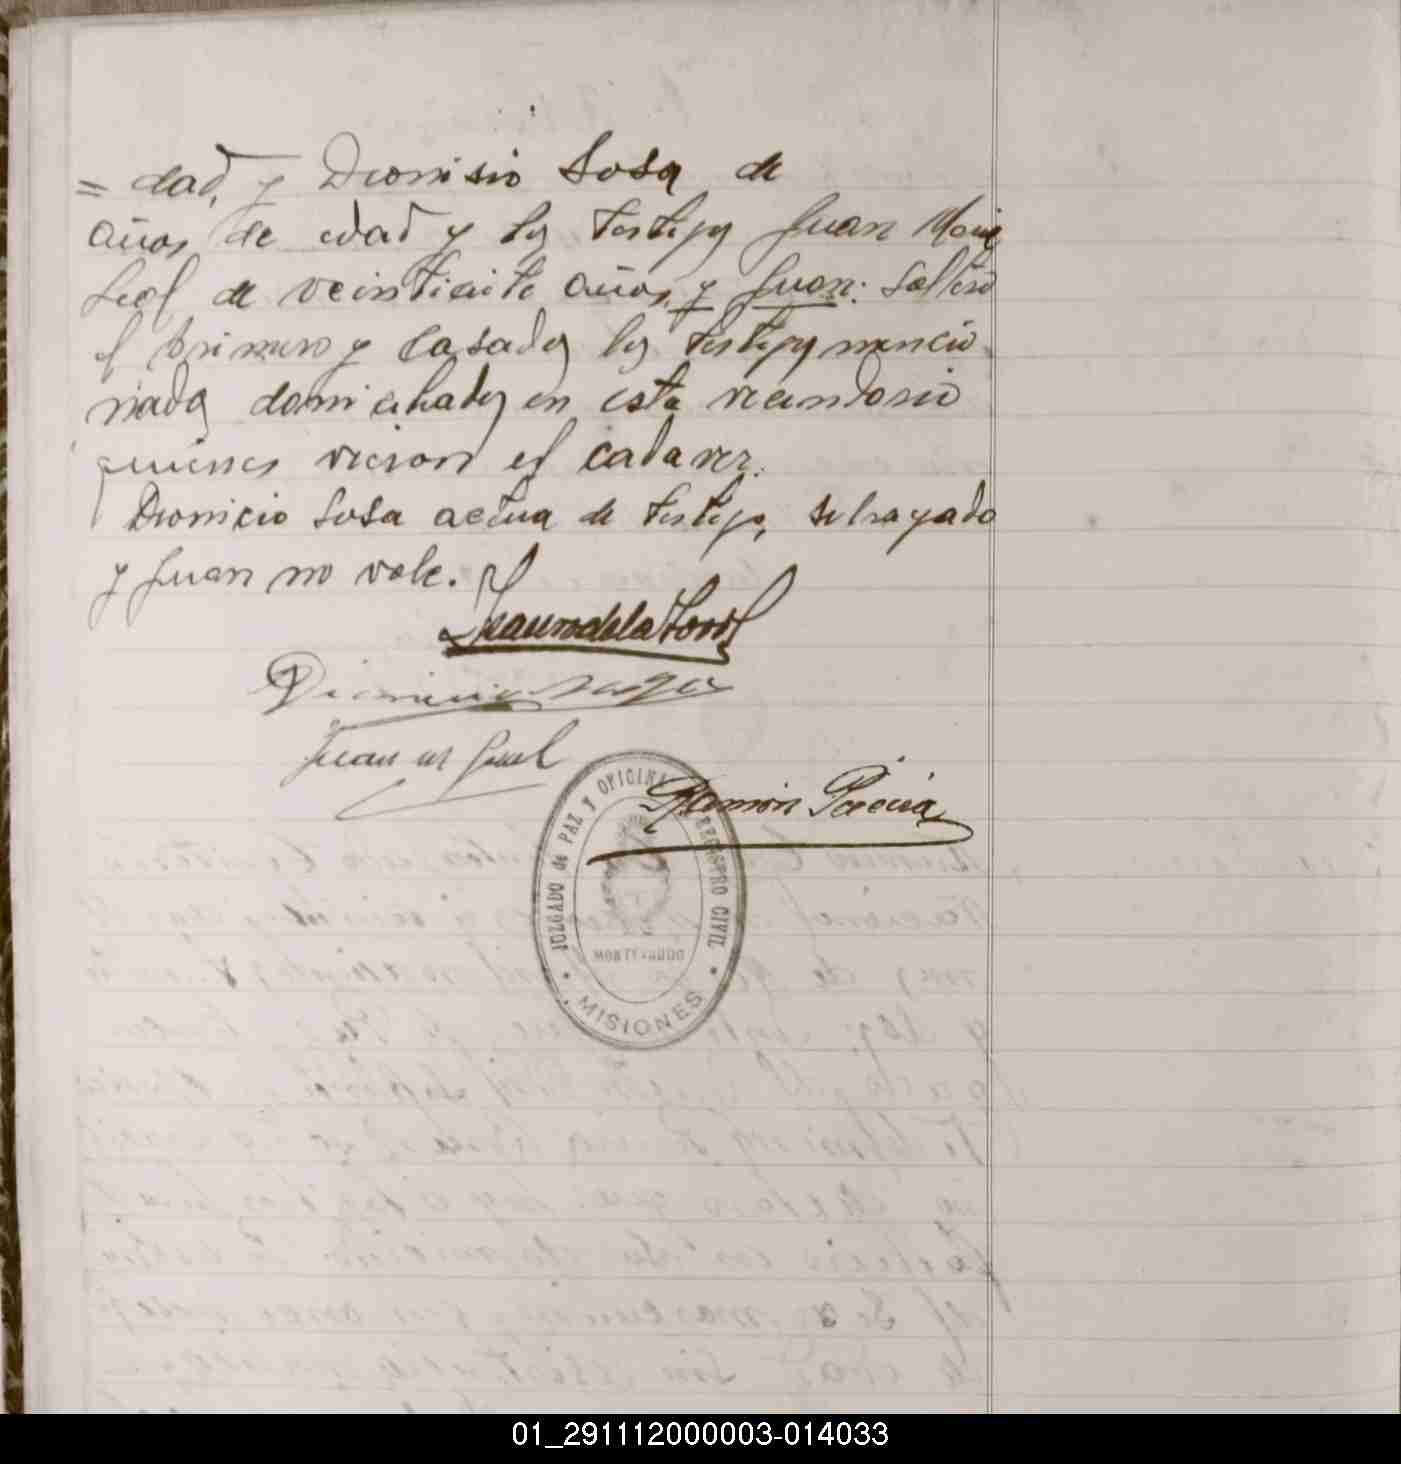 = dad, y Dionisio Sosa de
años de edad y los testigos Juan
Leal de veintisiete años, y Juan: Soltero
el primero y casados los testigos mencio
nados domiciliados en esta vecindario
quienes vieron el cadaver.
Dionicio Sosa actua de testigo, subrayado
y Juan no vale.
de la Torre
Dionicio
Juan M Leal
Ramón Pereira
JUZGADO de PAZ Y OFICINA REGISTRO CIVIL
MONTEAGUDO
MISIONES
01_291112000003-014033